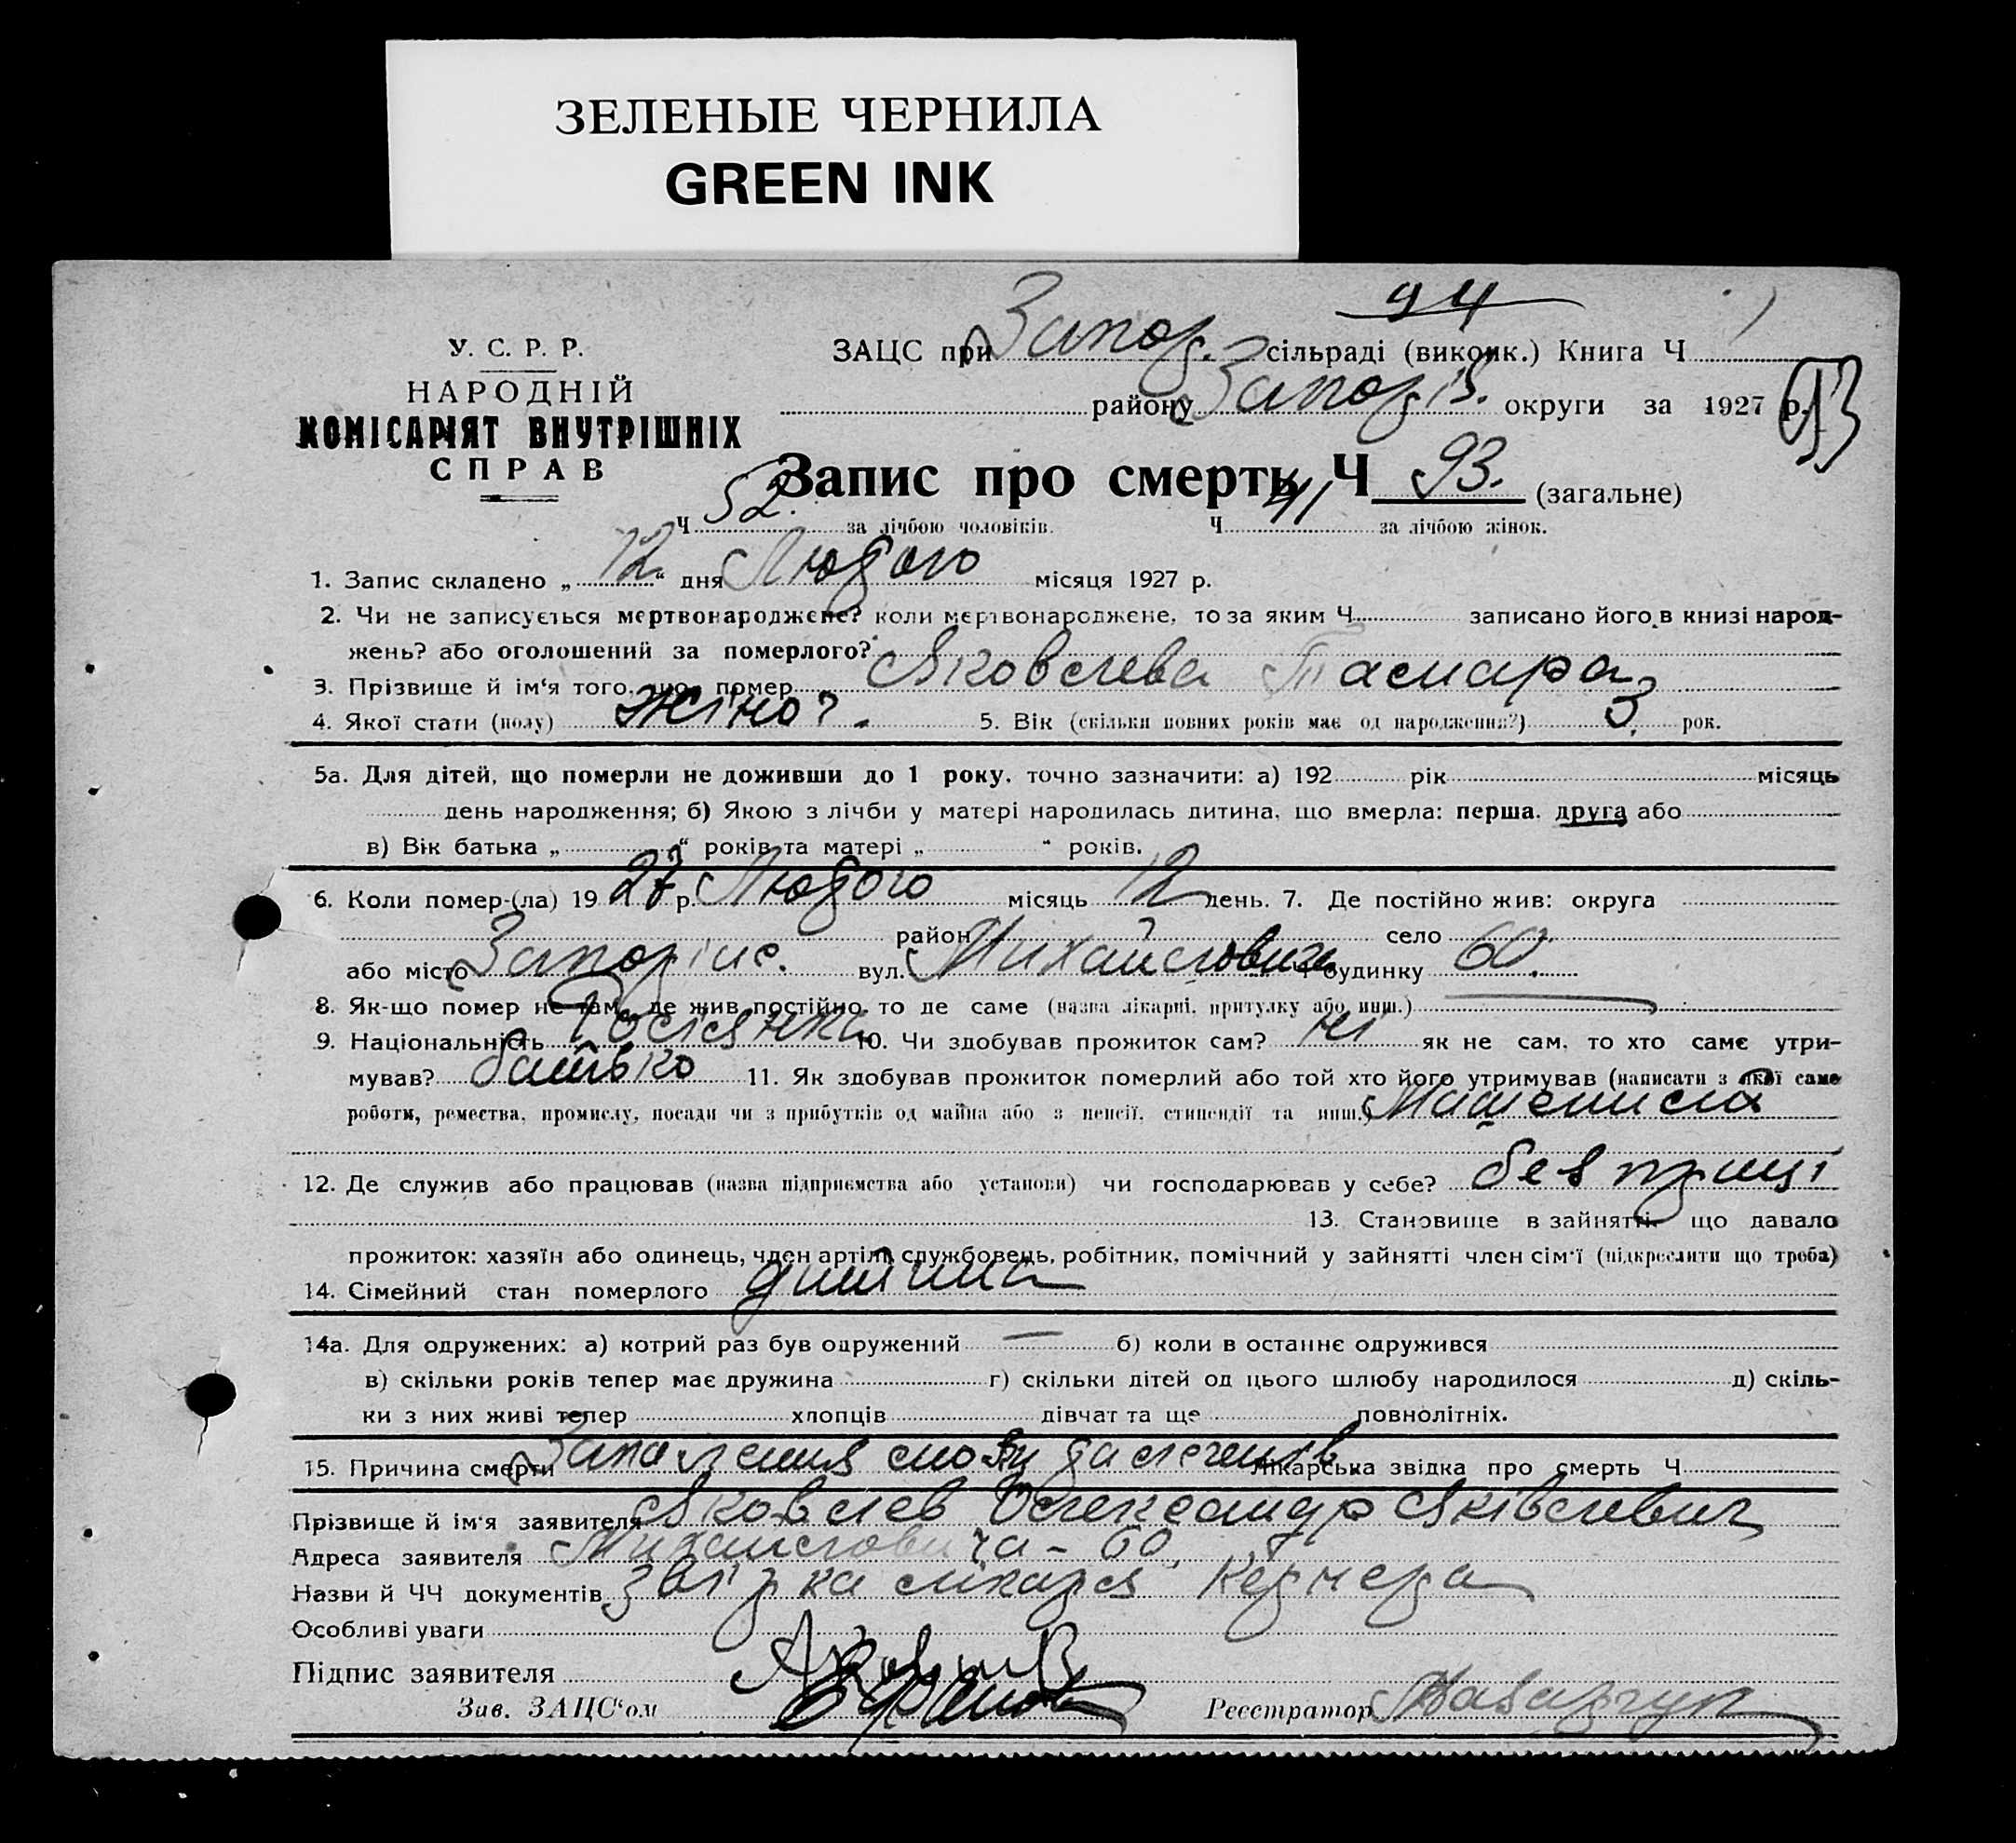 ЗЕЛЕНЫЕ ЧЕРНИЛА
GREEN INK
94
У. С. Р. Р.
НАРОДНІЙ
КОМІСАРІЯТ ВНУТРІШНІХ
СПРАВ
ЗАЦС при Запор. сільраді (виконк.) Книга Ч
району Запоріз. округи за 1927 р.
93
Запис про смерть Ч 93. (загальне)
Ч 52. за лічбою чоловіків. Ч 41 за лічбою жінок.
1. Запис складено „ 12 “ дня Лютого місяця 1927 р.
2. Чи не записується мертвонароджене? коли мертвонароджене, то за яким Ч записано його в книзі народ-
жень? або оголошений за померлого?
3. Прізвище й ім‘я того, що помер Яковлева Тамара
4. Якої стати (полу) жіноч. 5. Вік (скільки повних років має од народження?) 3 рок.
5а. Для дітей, що померли не доживши до 1 року, точно зазначити: а) 192 рік місяць
день народження; б) Якою з лічби у матері народилась дитина, що вмерла: перша, друга або
в) Вік батька „ “ років та матері „ “ років.
6. Коли помер-(ла) 19 27 р. Лютого місяць 12 день. 7. Де постійно жив: округа
район село
або місто Запоріж. вул. Михайловича Ч будинку 60.
8. Як-що помер не там, де жив постійно, то де саме (назва лікарні, притулку або инш.)
9. Національність Росіянка 10. Чи здобував прожиток сам? ні як не сам, то хто саме утри-
мував? батько 11. Як здобував прожиток померлий або той хто його утримував (написати з якої саме
роботи, ремества, промислу, посади чи з прибутків од майна або з пенсії, стипендії та инш.)
12. Де служив або працював (назва підприємства або установи) чи господарював у себе? без праці
13. Становище в зайнятті, що давало
прожиток: хазяїн або одинець, член артілі, службовець, робітник, помічний у зайнятті член сім‘ї (підкреслити що треба)
14. Сімейний стан померлого дитина
14а. Для одружених: а) котрий раз був одружений — б) коли в останнє одружився
в) скільки років тепер має дружина г) скільки дітей од цього шлюбу народилося д) скіль-
ки з них живі тепер хлопців дівчат та ще повнолітніх.
15. Причина смерти Запалення Лікарська звідка про смерть Ч
Прізвище й ім‘я заявителя Яковлев Олександр Яківлевич
Адреса заявителя Михайловича - 60.
Назви й ЧЧ документів звідка лікаря
Особливі уваги
Підпис заявителя
Зав. ЗАЦС‘ом Реєстратор